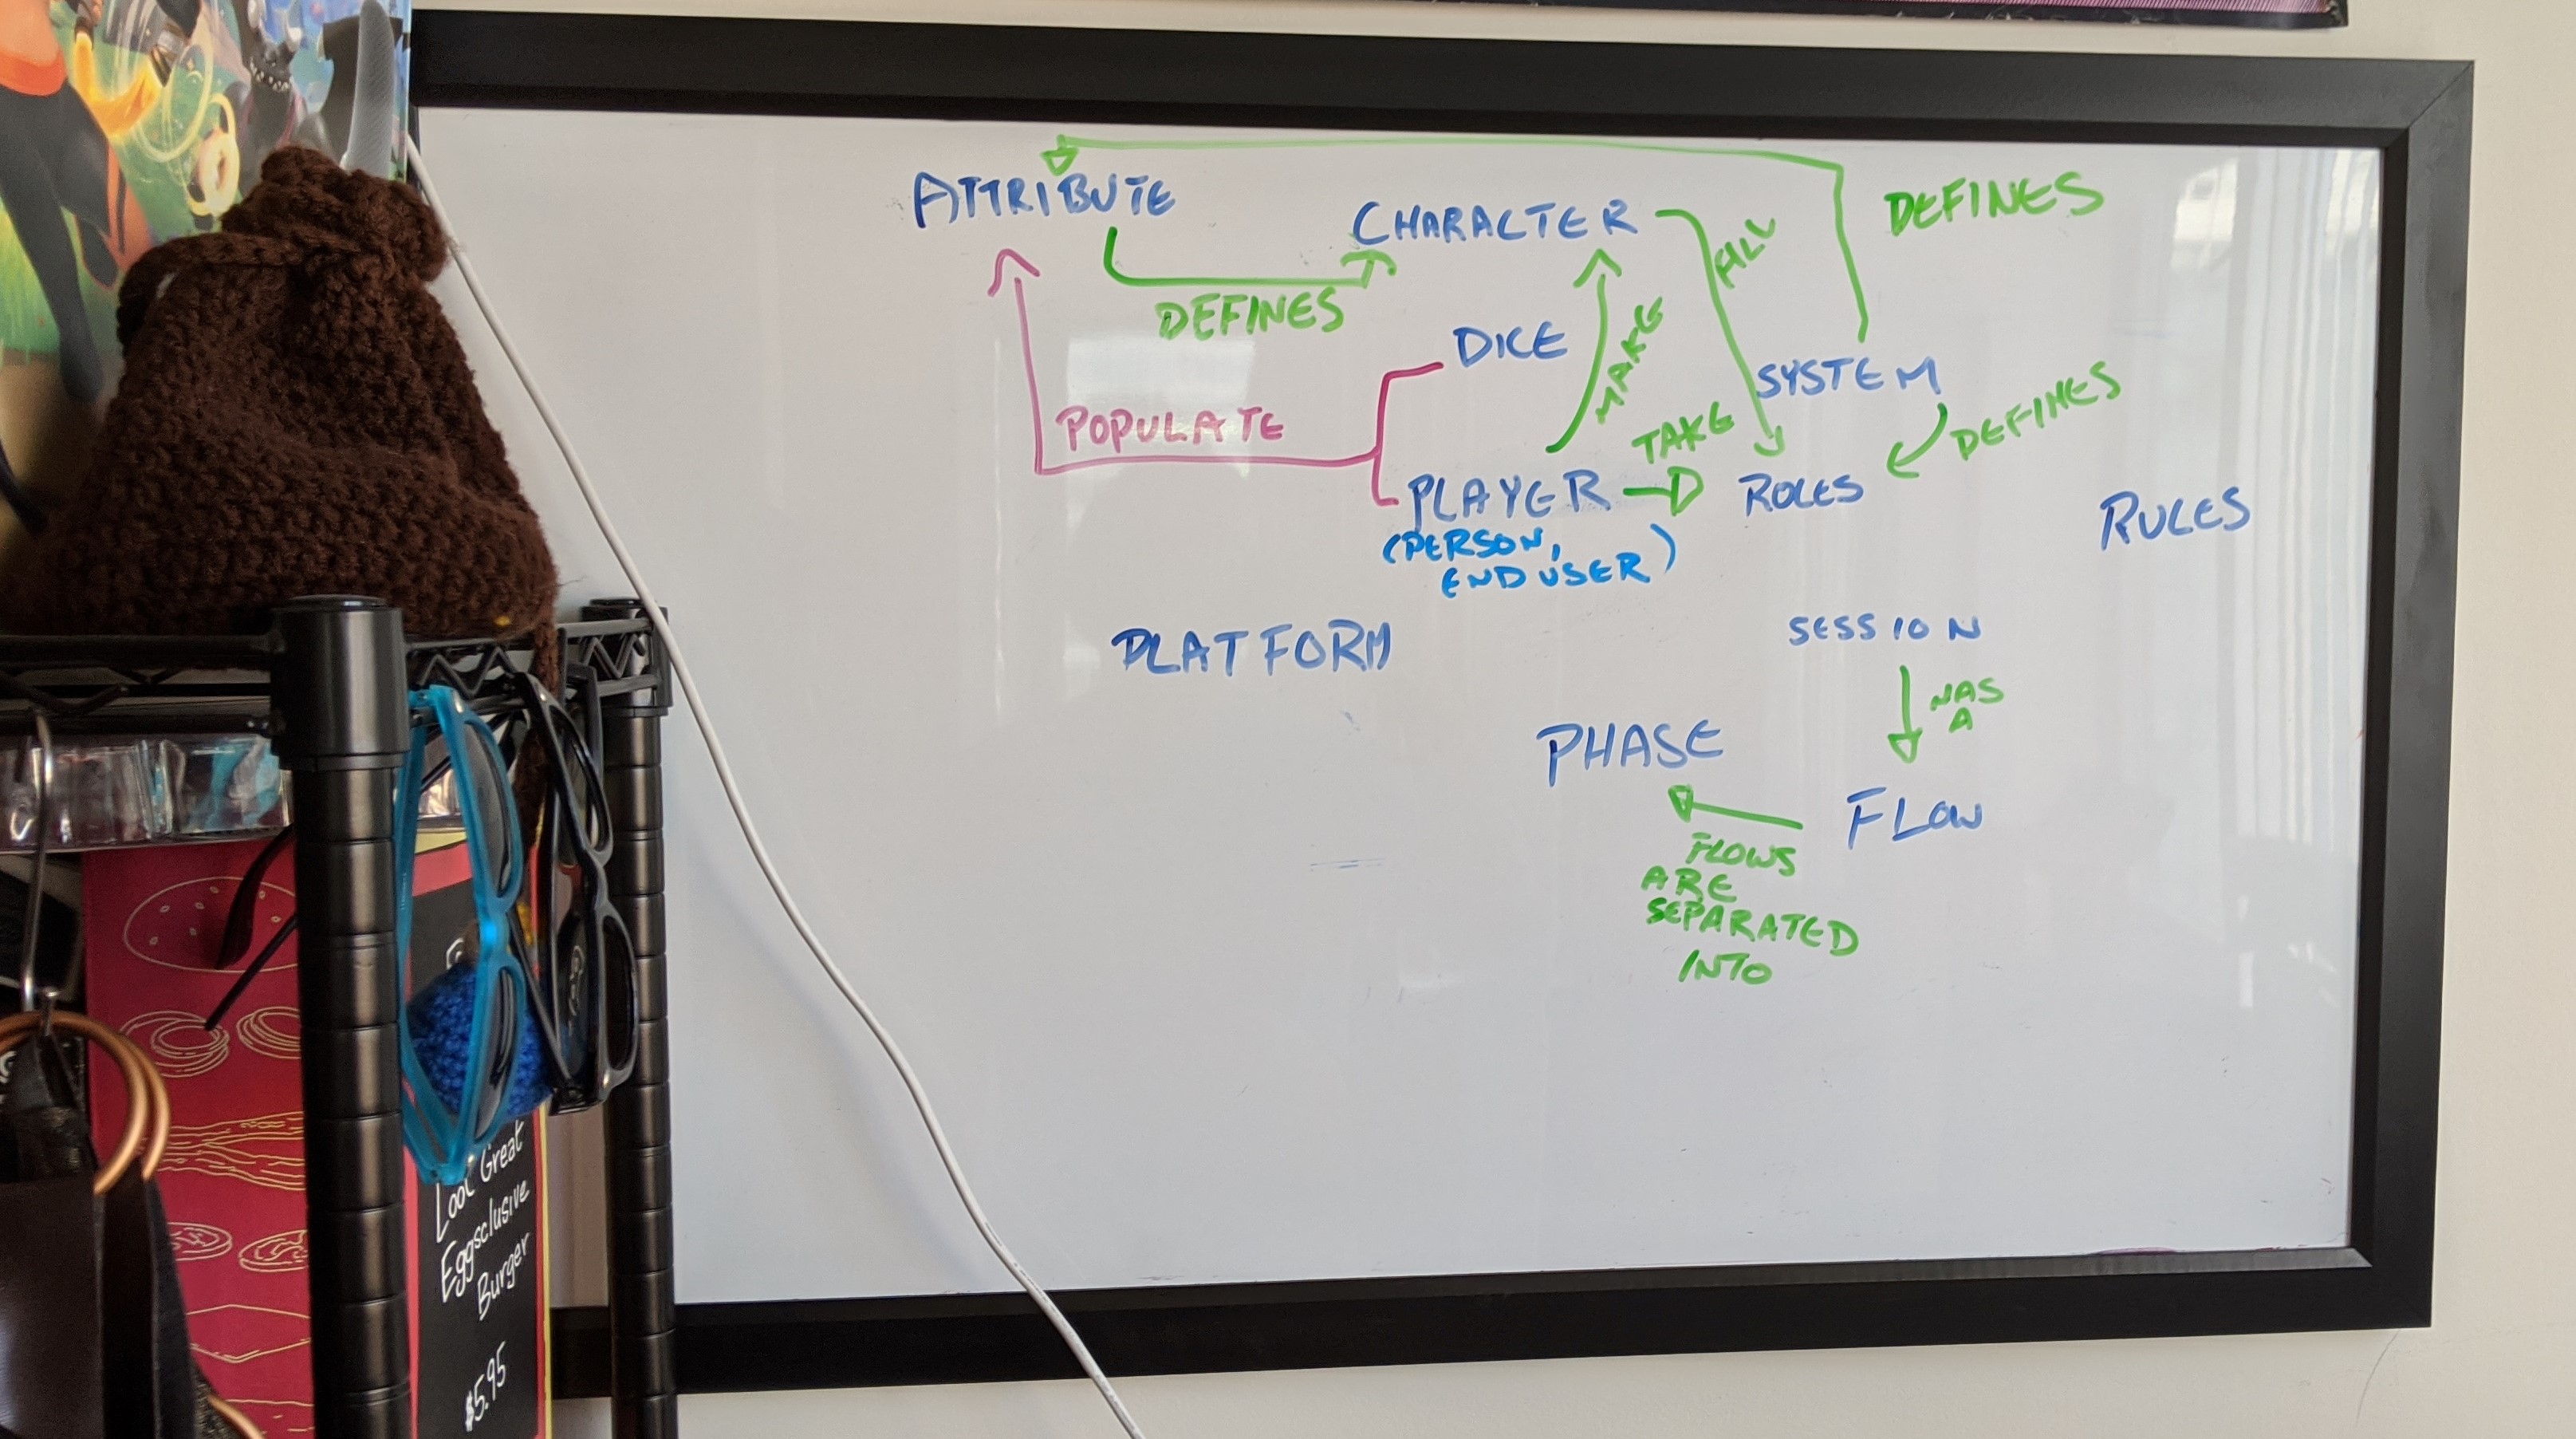 ATTRIBUTE
CHARACTER
DEFINES
FILL
DEFINES
DICE
MAKE
SYSTEM
POPULATE
TAKE
DEFINES
PLAYER
ROLES
RULES
(PERSON,
END USER)
PLATFORM
SESSION
HAS
A
PHASE
FLOW
FLOWS
ARE
SEPARATED
INTO
Great
Eggsclusive
Burger
$5.95